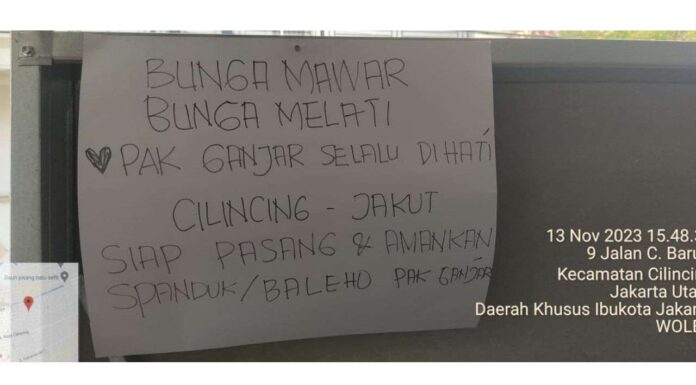 BUNGA MAWAR
BUNGA MELATI
PAK GANJAR SELALU DIHATI
CILINCING - JAKUT
SIAP PASANG & AMANKAN
SPANDUK/BALEHO PAK GANJAR
13 Nov 2023 15.48.3
9 Jalan C. Baru
Kecamatan Cilincin
Jakarta Uta
Daerah Khusus Ibukota Jakar
WOLE